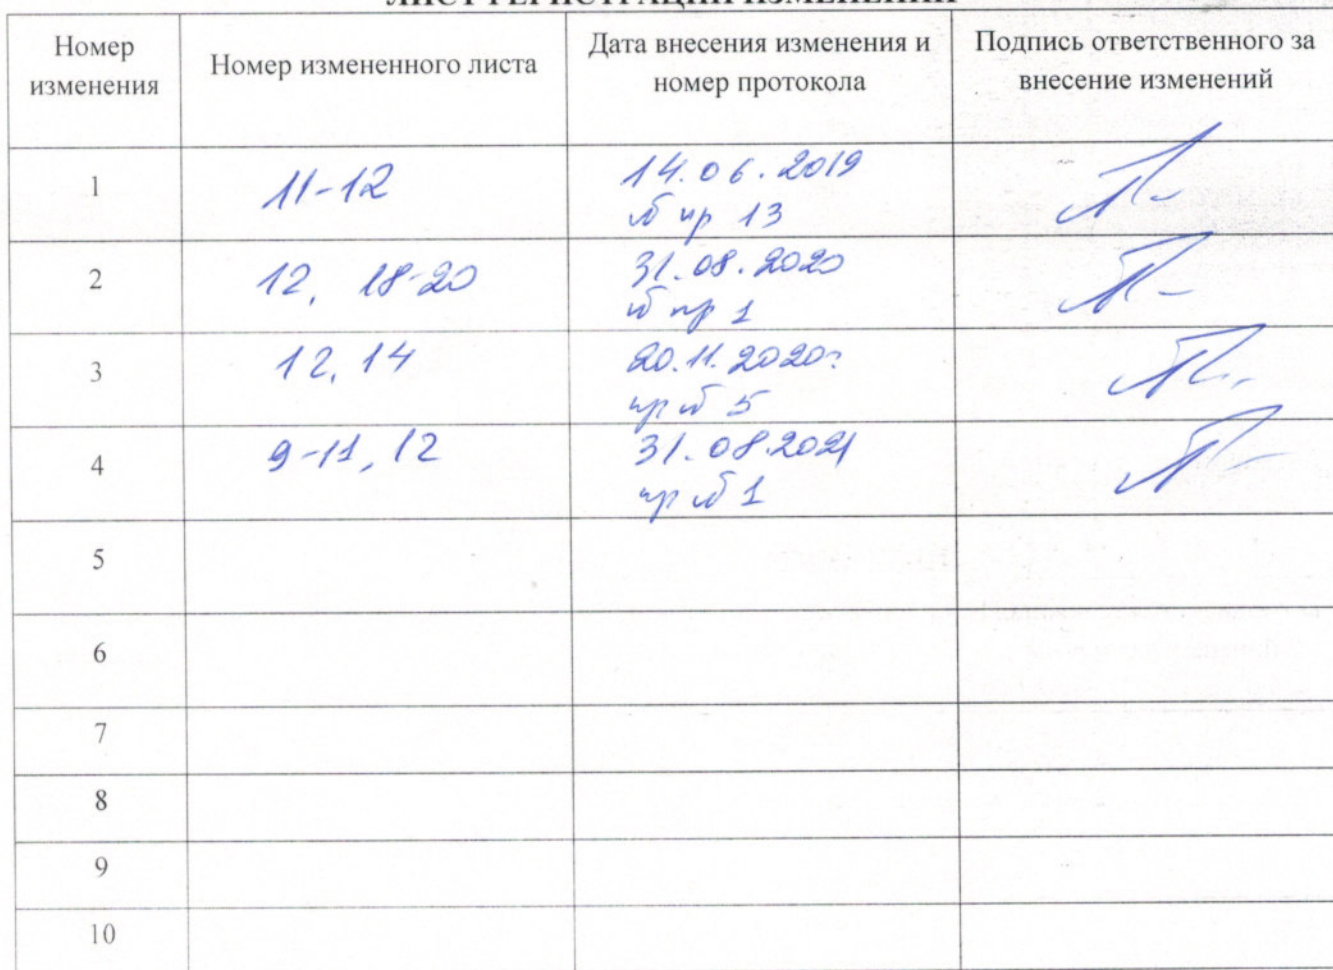 ЛИСТ РЕГИСТРАЦИИ ИЗМЕНЕНИЙ
Номер изменения
Номер измененного листа
Дата внесения изменения и номер протокола
Подпись ответственного за внесение изменений
1
11-12
14.06.2019
№ пр 13
2
12, 18-20
31.08.2020
№ пр 1
3
12, 14
20.11.2020г
пр № 5
4
9-11, 12
31.08.2021
пр № 1
5
6
7
8
9
10